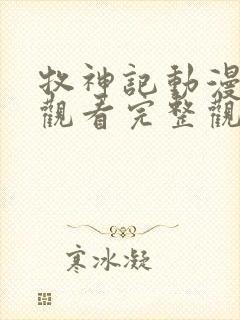 牧神記動漫
觀看完整觀
寒冰凝